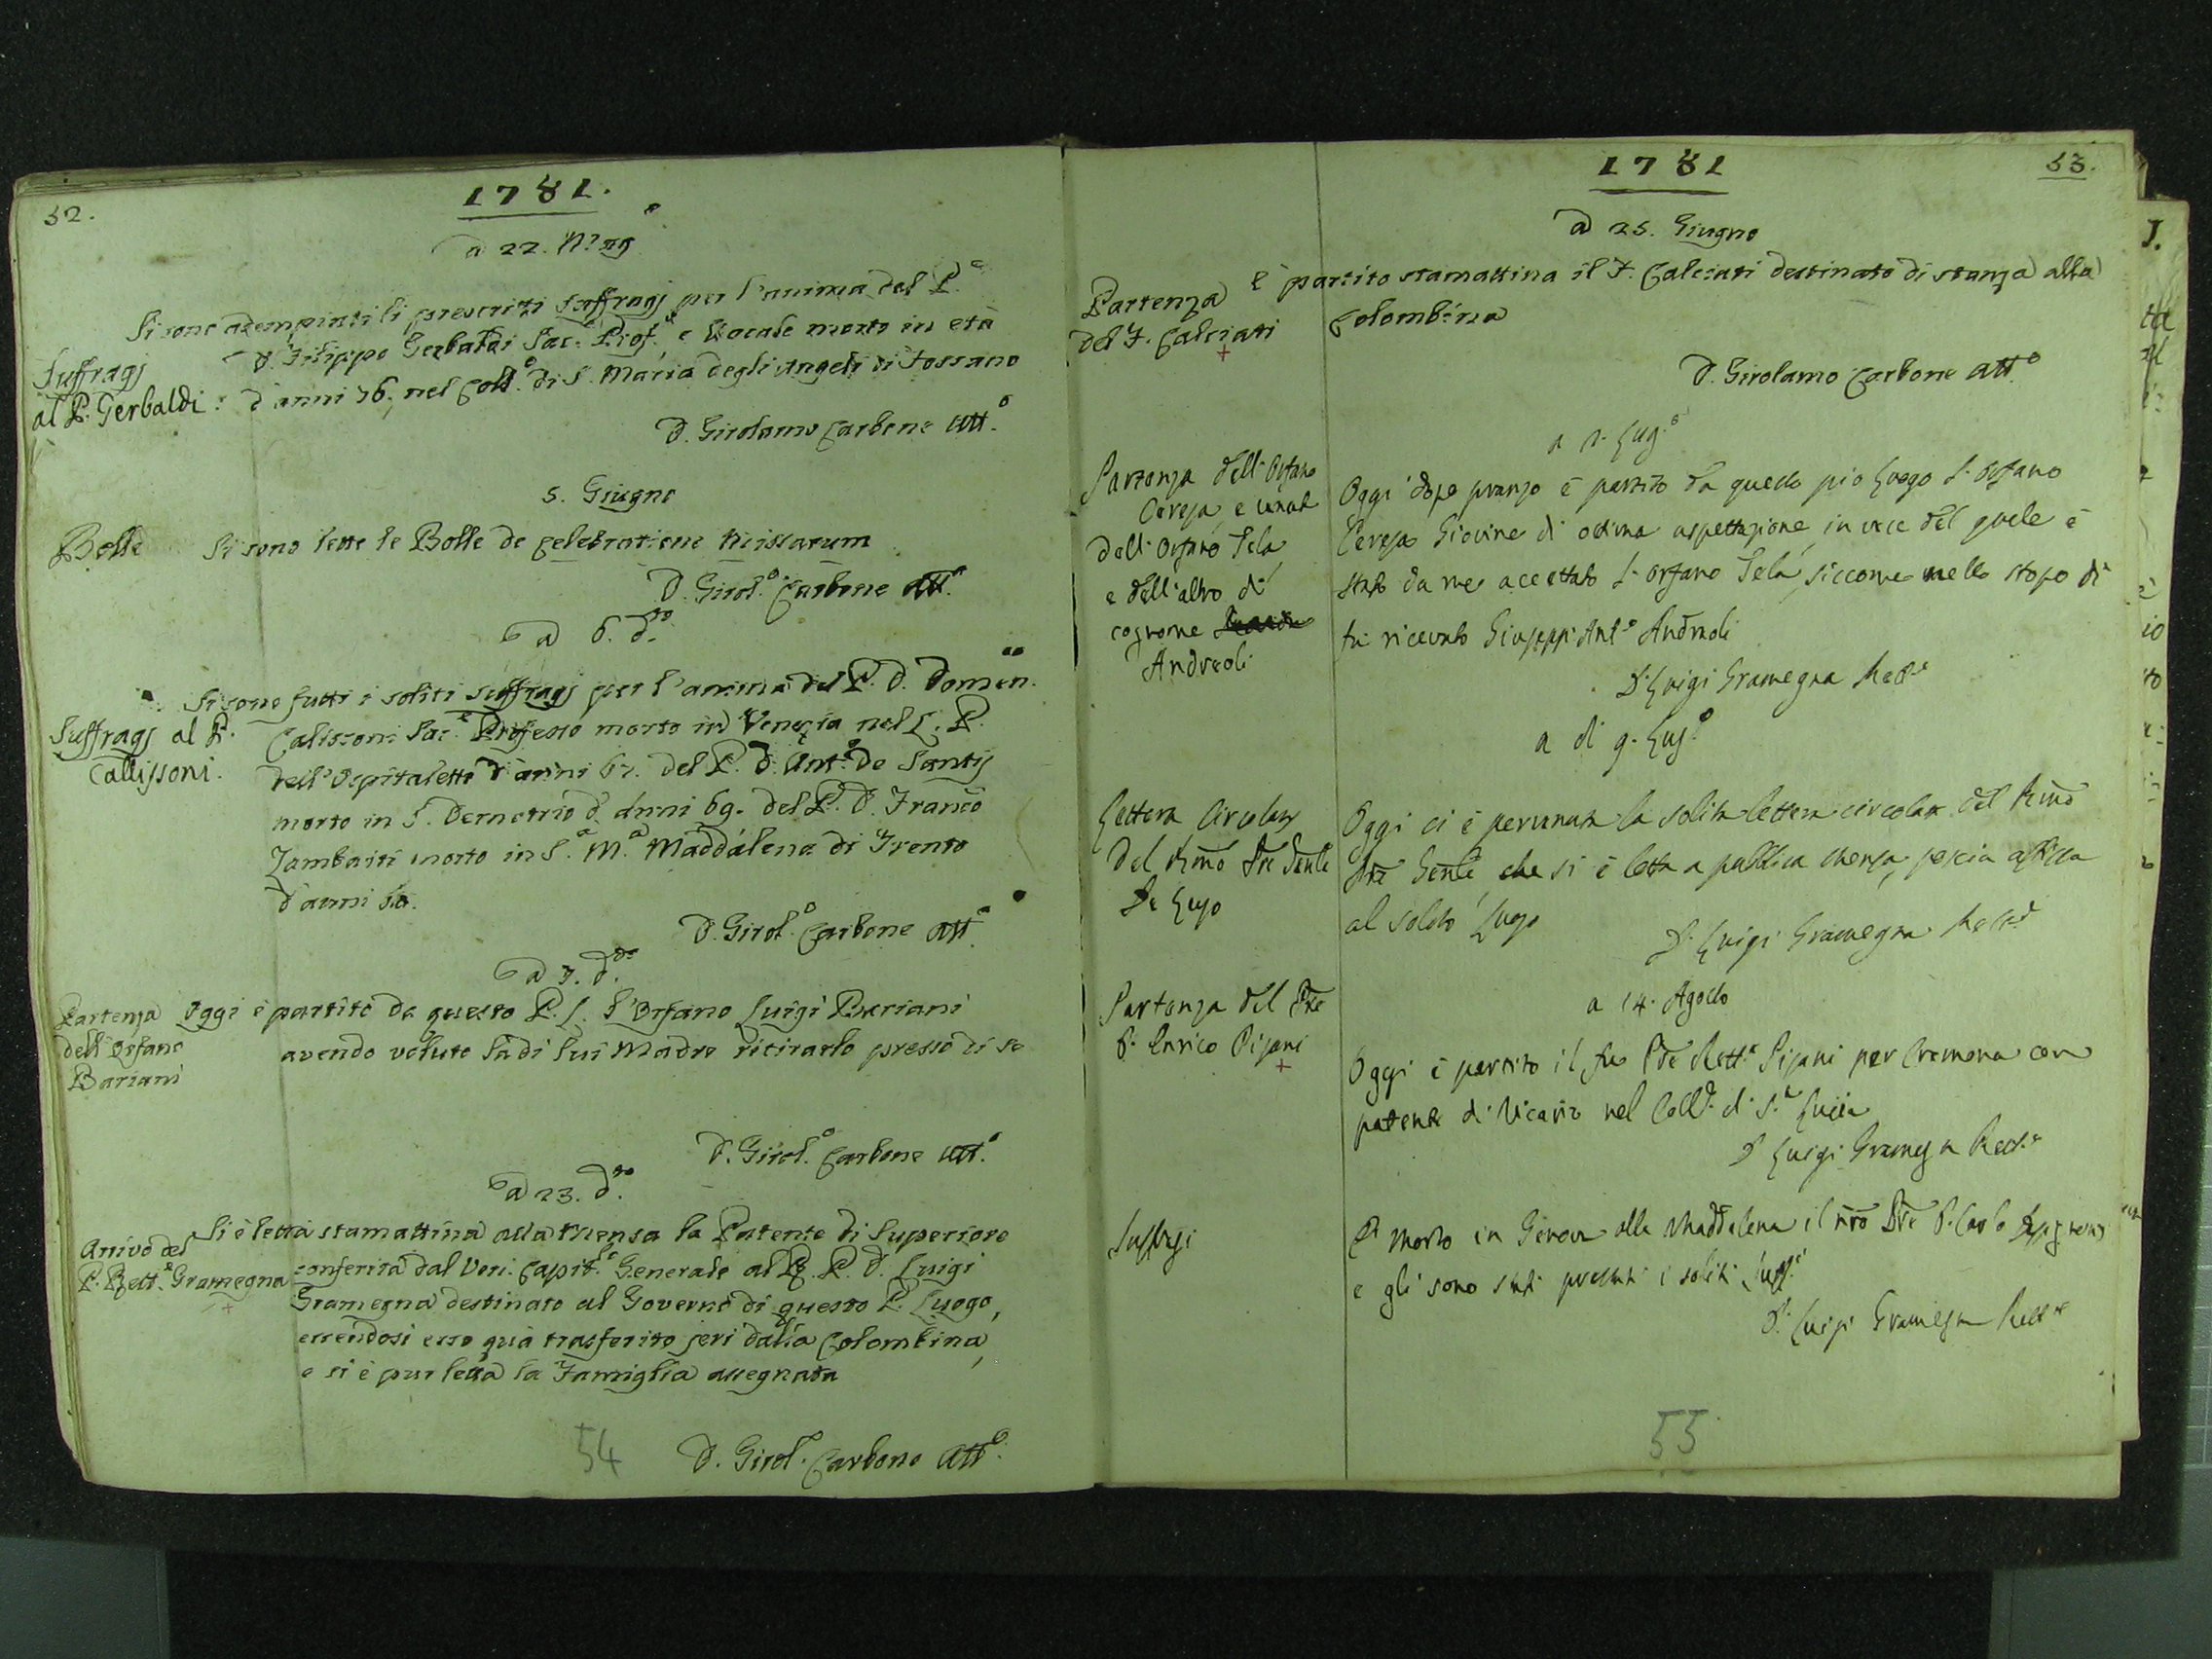 52.
1781.
a 22. Magg.°
Si sono adempiuti li prescritti suffragj per l'anima del P.e
Suffragj
al P. Gerbaldi:
D. Filippo Gerbaldi Sac.e Prof.o e Vocale morto in età
d'anni 76, nel Coll.° di S. Maria degli Angeli di Fossano
D. Girolamo Carbone Att.°
5. Giugno
Bolle
Si sono lette le Bolle de celebratione Missarum
D. Girol.° Carbone Att.°
a 6. d.to
Si sono fatti i soliti suffragj per l'anima del P. D. Domen.co
Suffragj al P.
Callissoni.
Calissoni Sac.e Professo morto in Venezia nel L. P.
dell'Ospitaletto d'anni 67. del P. D. Ant.° De Santis
morto in S. Demetrio d'anni 69. del P. D. Franc̃o
Zambaiti morto in S.a M.a Maddalena di Trento
d'anni
D. Girol.° Carbone Att.°
a 7. d.to
Partenza
dell'Orfano
Bariani
Oggi è partito da questo P. L. l'Orfano Luigi Bariani
avendo voluto la di lui Madre ritirarlo presso di se
D. Girol.° Carbone Att.°
a 23. d.to
Arrivo del
P. Rett.e Gramegna
+
Si è letta stamattina alla Mensa la Patente di Superiore
conferita dal Ven. Capit.° Generale al R. P. D. Luigi
Gramegna destinato al Governo di questo P. Luogo,
essendosi esso quà trasferito jeri dalla Colombina,
e si è pur letta la Famiglia assegnata
D. Girol.° Carbone Att.°
54
1781
53.
a 25. Giugno
Partenza
del F. Calciati
+
è partito stamattina il F. Calciati destinato di stanza alla
Colombina
D. Girolamo Carbone Att.°
a 1. Lug.°
Partenza dell'Orfano
Ceresa, e
dell'Orfano Tela
e dell'altro di
cognome
Andreoli
Oggi dopo pranzo è partito da questo pio Luogo l'orfano
Ceresa Giovine di ottima aspettazione, in vece del quale è
stato da me accettato l'orfano Tela, siccome nello stesso dì
fu ricevuto Giuseppe Ant.° Andreoli
D. Luigi Gramegna Rett.e
a di 9. Lug.°
Lettera Circolare
del Rm̃o Pre Gen̄le
De Lugo
Oggi ci è pervenuta la solita lettera circolare del Rm̃o
Pre Gen̄le che si è letta a pubblica mensa, poscia affissa
al solito Luogo
D. Luigi Gramegna Rett.e
a 14. Agosto
Partenza del Pre
D. Enrico Pisani
+
Oggi è partito il fu Pre Rett.e Pisani per Cremona con
patente di Vicario nel Coll.° di S.a Lucia
D. Luigi Gramegna Rett.e
Suffragi
È morto in Genova alla Maddalena il nr̃o Pre D. Carlo
e gli sono stati prestati i soliti suff.i
D. Luigi Gramegna Rett.re
55